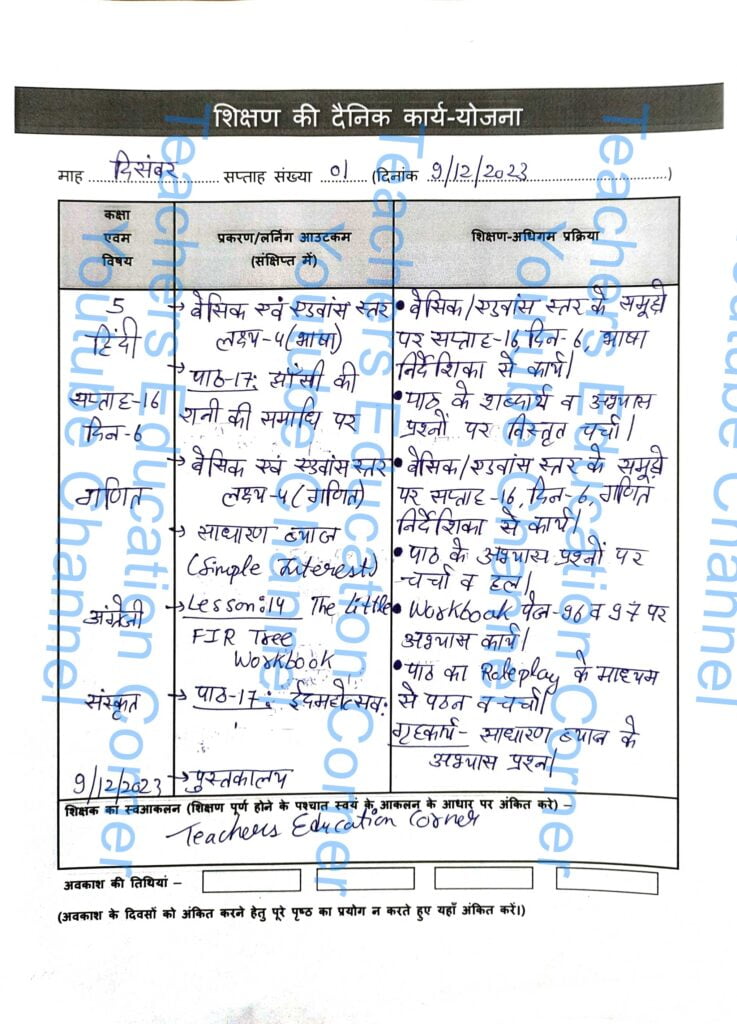 शिक्षण की दैनिक कार्य-योजना
माह दिसंबर सप्ताह संख्या 01 (दिनांक 9/12/2023)
कक्षा
एवम
विषय
प्रकरण/लर्निग आउटकम
(संक्षिप्त में)
शिक्षण-अधिगम प्रक्रिया
5
हिंदी
सप्ताह-16
दिन-6
→ बेसिक एवं एडवांस स्तर
लक्ष्य-4 (भाषा)
→ पाठ-17: झाँसी की
रानी की समाधि पर
• बेसिक/एडवांस स्तर के समूहों
पर सप्ताह-16, दिन-6, भाषा
निर्देशिका से कार्य।
• पाठ के शब्दार्थ व अभ्यास
प्रश्नों पर विस्तृत चर्चा।
गणित
→ बेसिक एवं एडवांस स्तर
लक्ष्य-4 (गणित)
→ साधारण ब्याज
(Simple Interest)
• बेसिक/एडवांस स्तर के समूहों
पर सप्ताह-16, दिन-6, गणित
निर्देशिका से कार्य।
• पाठ के अभ्यास प्रश्नों पर
चर्चा व हल।
अंग्रेजी
→ Lesson:14 The Little
FIR Tree
Workbook
• Workbook पेज-96 व 97 पर
अभ्यास कार्य।
संस्कृत
→ पाठ-17: ईदमहोत्सवः
• पाठ का Roleplay के माध्यम
से पठन व चर्चा।
गृहकार्य- साधारण ब्याज के
अभ्यास प्रश्न।
9/12/2023
→ पुस्तकालय
शिक्षक का स्वआकलन (शिक्षण पूर्ण होने के पश्चात स्वयं के आकलन के आधार पर अंकित करे) –
Teachers Education Corner
अवकाश की तिथियां –
(अवकाश के दिवसों को अंकित करने हेतु पूरे पृष्ठ का प्रयोग न करते हुए यहाँ अंकित करें।)
Teachers Education Corner
Youtube Channel
Teachers Education Corner
Youtube Channel
Teachers Education Corner
Youtube Channel